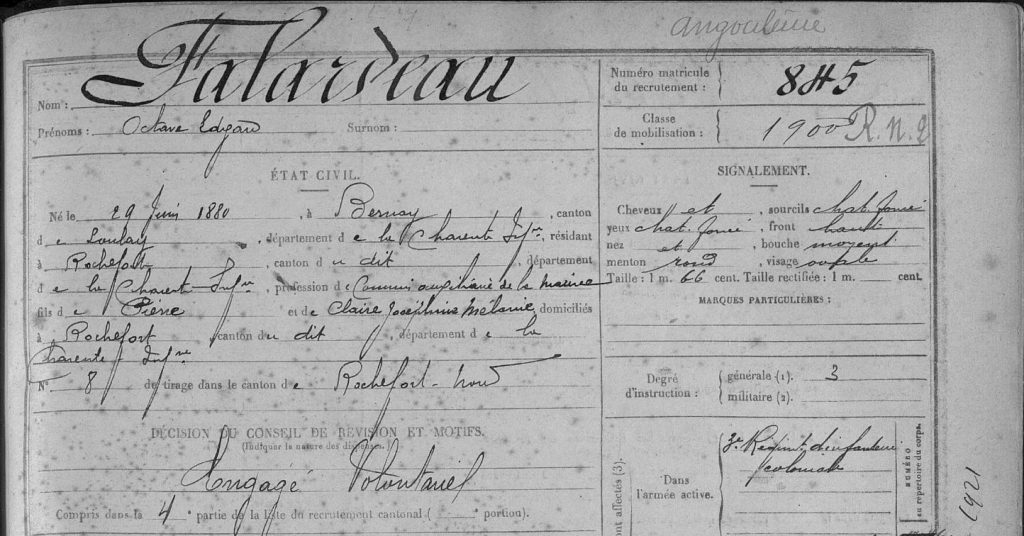 Angoulême
Nom : Falardeau
Prénoms : Octave Edgard Surnom :
Numéro matricule du recrutement : 845
Classe de mobilisation : 1900 R.N.2
ÉTAT CIVIL.
Né le 29 Juin 1880, à Bernay, canton
de Loulay, département de la Charente Infre, résidant
à Rochefort, canton du dit, département
de la Charente-Infre, profession de Commis auxiliaire de la marine
fils de Pierre et de Claire Joséphine Mélanie domiciliés
à Rochefort, canton du dit, département de la
Charente Infre
N° 8 de tirage dans le canton de Rochefort-nord
SIGNALEMENT.
Cheveux et, sourcils chat. foncé
yeux chat. foncé, front haut
nez et, bouche moyent
menton rond, visage ovale
Taille : 1 m. 66 cent. Taille rectifiée : 1 m. cent.
MARQUES PARTICULIÈRES :
Degré d'instruction : générale (1). 3
militaire (2).
DÉCISION DU CONSEIL DE RÉVISION ET MOTIFS.
(Indiquer la nature des dispenses.)
Engagé Volontaire
Compris dans la 4 partie de la liste du recrutement cantonal ( portion).
affectés (3).
Dans l'armée active.
3e Régimt d'infanterie
coloniale
NUMÉRO
au répertoire du corps.
1921